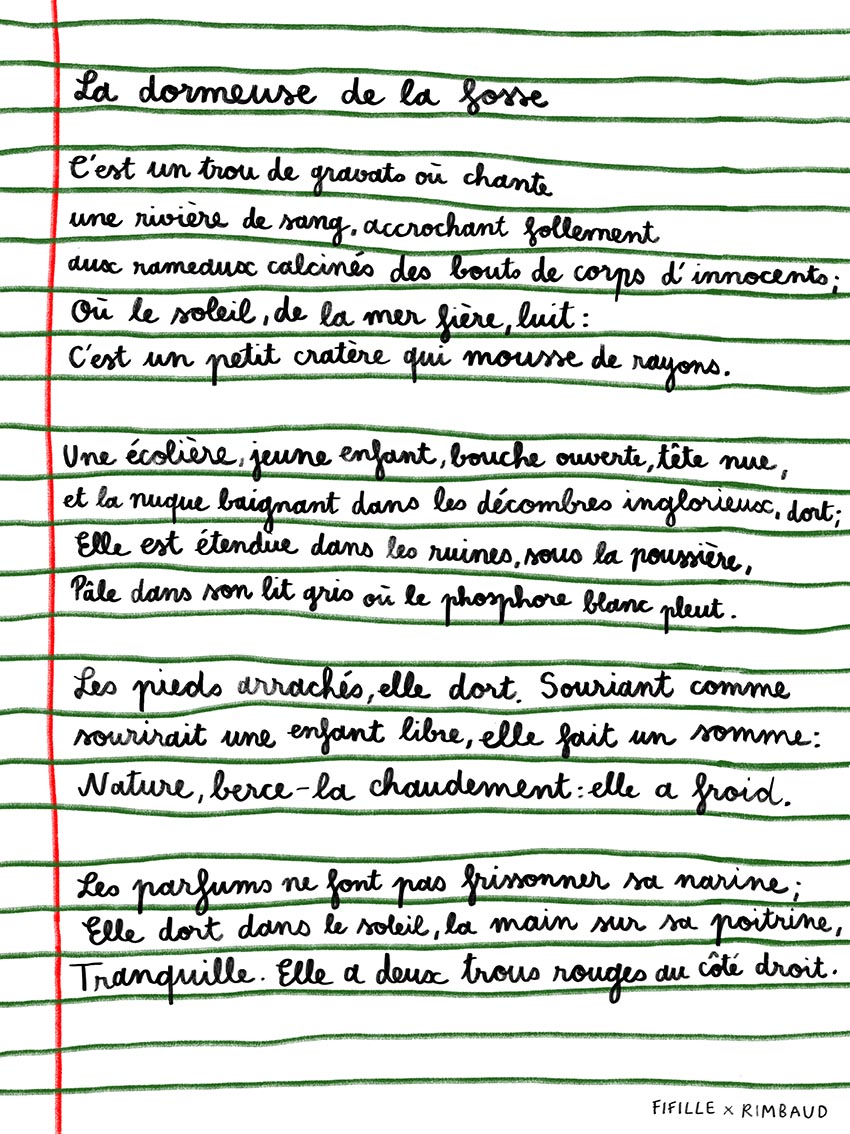 La dormeuse de la fosse
C'est un trou de gravats où chante
une rivière de sang, accrochant follement
aux rameaux calcinés des bouts de corps d'innocents;
Où le soleil, de la mer fière, luit:
C'est un petit cratère qui mousse de rayons.
Une écolière, jeune enfant, bouche ouverte, tête nue,
et la nuque baignant dans les décombres inglorieux, dort;
Elle est étendue dans les ruines, sous la poussière,
Pâle dans son lit gris où le phosphore blanc pleut.
Les pieds arrachés, elle dort. Souriant comme
sourirait une enfant libre, elle fait un somme:
Nature, berce-la chaudement: elle a froid.
Les parfums ne font pas frissonner sa narine;
Elle dort dans le soleil, la main sur sa poitrine,
Tranquille. Elle a deux trous rouges au côté droit.
FIFILLE x RIMBAUD